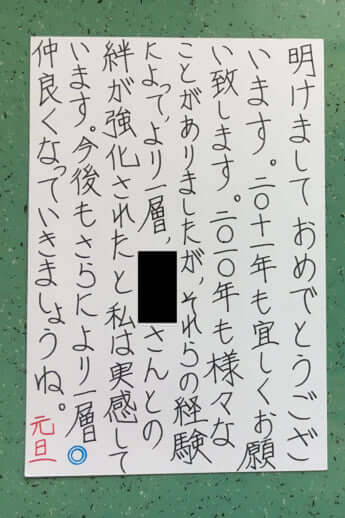 明けましておめでとうござ
います。二〇十一年も宜しくお願
い致します。二〇一〇年も様々な
ことがありましたが、それらの経験
によって、より一層、さんとの
絆が強化されたと私は実感して
います。今後もさらにより一層
仲良くなっていきましょうね。
元旦